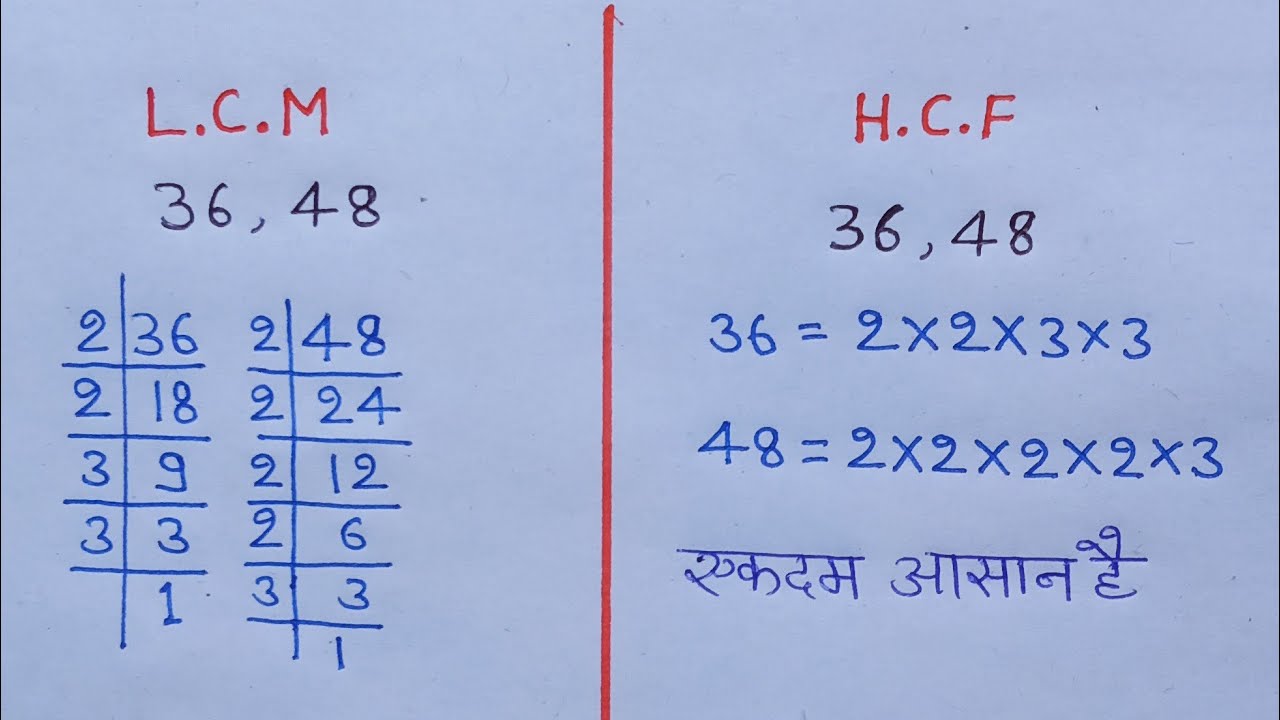 L.C.M
36, 48
2 36
2 18
3 9
3 3
1
2 48
2 24
2 12
2 6
3 3
1
H.C.F
36, 48
36 = 2×2×3×3
48 = 2×2×2×2×3
एकदम आसान है